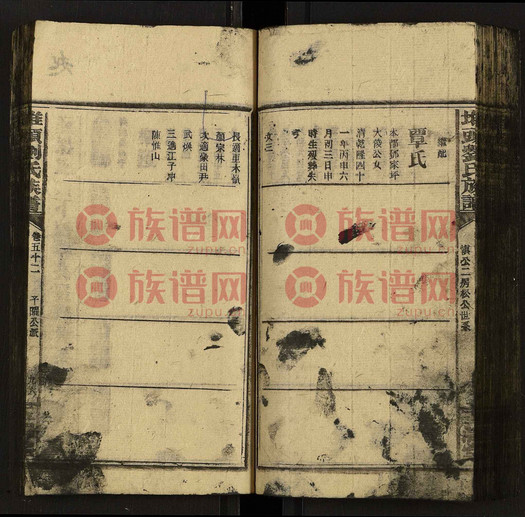 堆頭劉氏族譜
慎公二房松公世系
覃氏
本都鄧家坪
大俊公女
清乾隆四十
一年丙申六
月初三日申
時生歿葬失
女三
長適
顏家林
次適
武煥一
三適江子冲
陳惟山
堆頭劉氏族譜
卷五十二
子賜公派
族谱网
zupu.cn
族谱网
zupu.cn
族谱网
zupu.cn
族谱网
zupu.cn